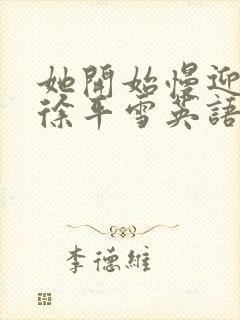 她開始慢迎
徐平雪英語
李德維